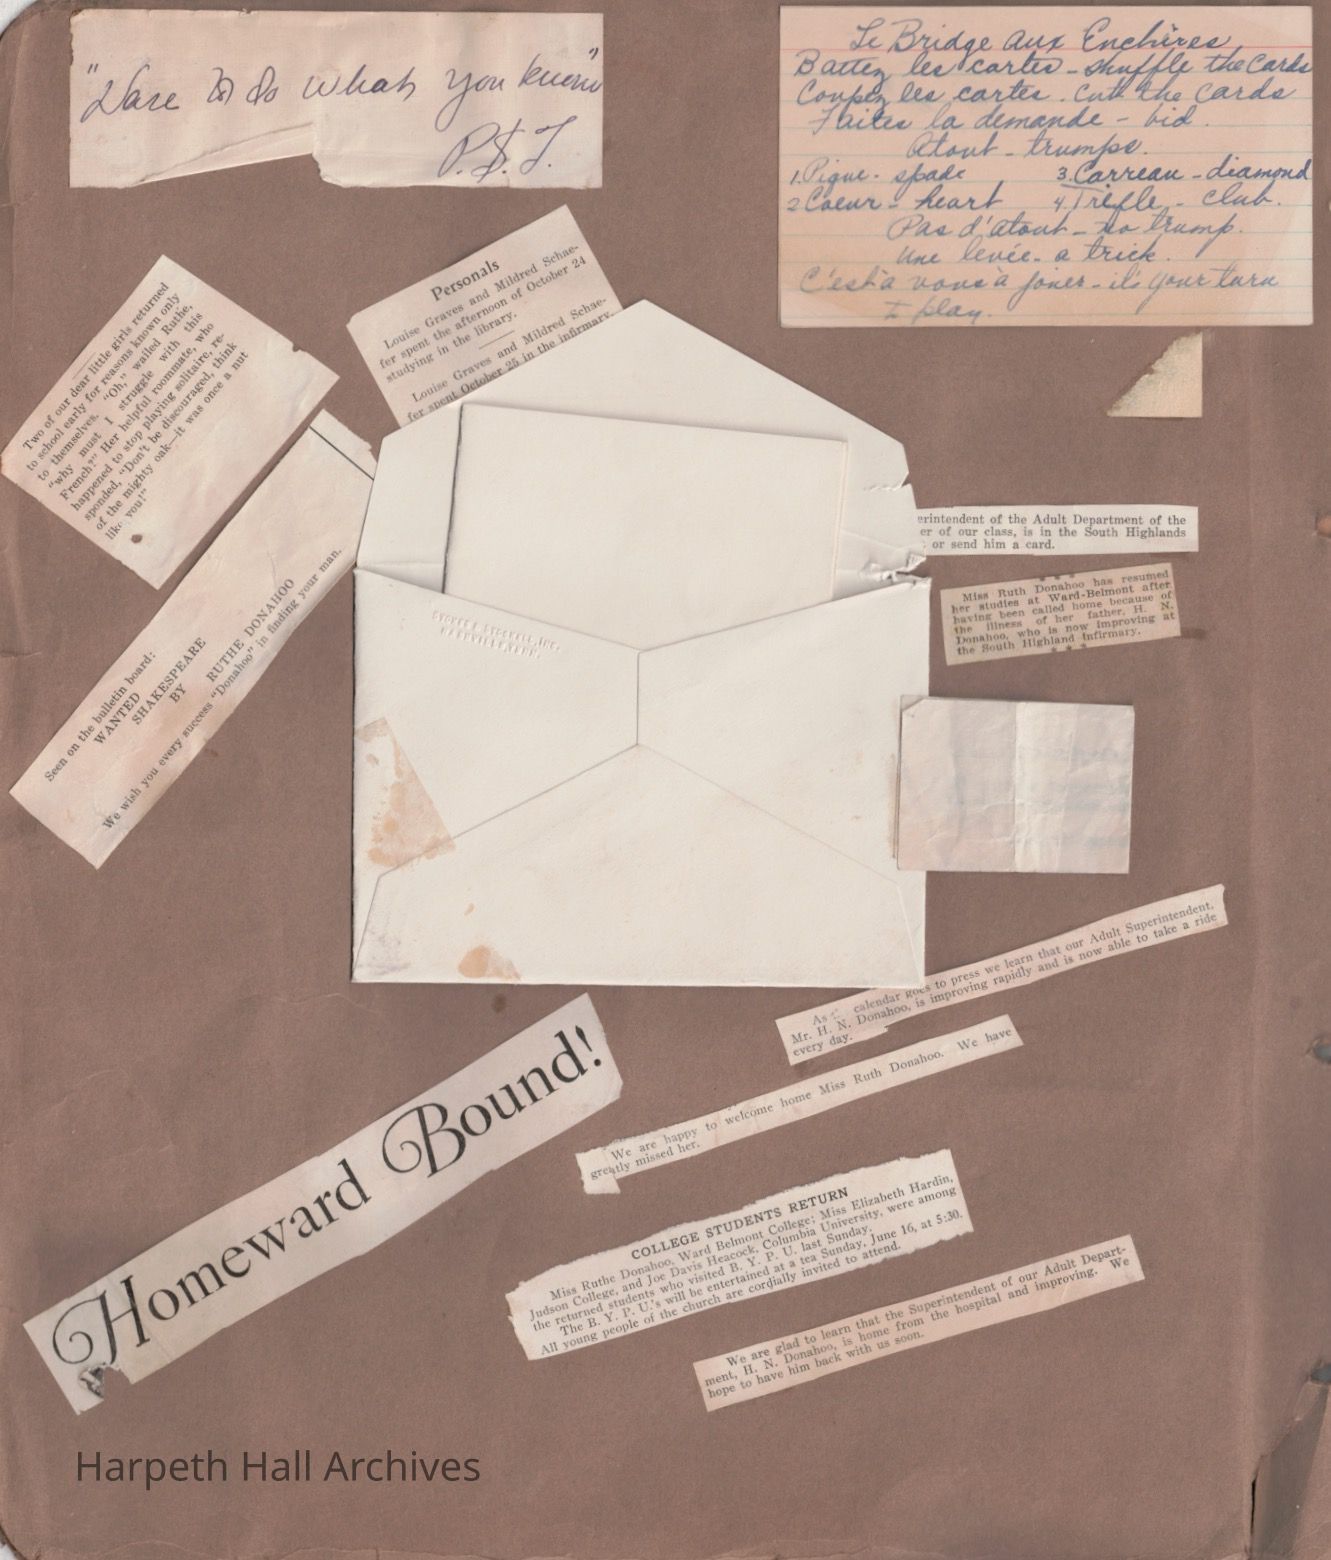 "Dare to do what you know"
P.$.J.
Le Bridge aux Enchères
Battez les cartes - shuffle the cards
Coupez les cartes. Cut the cards
Faites la demande - bid.
Atout - trumps.
1. Pique - spade 3. Carreau - diamond
2 Coeur - heart 4. Trèfle - club.
Pas d'atout - no trump.
Une levée - a trick.
C'est à vous à jouer - it's your turn
to play.
Personals
Louise Graves and Mildred Schae-
fer spent the afternoon of October 24
studying in the library.
Louise Graves and Mildred Schae-
fer spent October 25 in the infirmary.
Two of our dear little girls returned
to school early for reasons known only
to themselves. "Oh," wailed Ruthe,
"why must I struggle with this
French?" Her helpful roommate, who
happened to stop playing solitaire, re-
sponded, "Don't be discouraged, think
of the mighty oak—it was once a nut
like you!"
Seen on the bulletin board:
WANTED
SHAKESPEARE
BY RUTHE DONAHOO
We wish you every success "Donahoo" in finding your man.
erintendent of the Adult Department of the
er of our class, is in the South Highlands
or send him a card.
* * *
Miss Ruth Donahoo has resumed
her studies at Ward-Belmont after
having been called home because of
the illness of her father, H. N.
Donahoo, who is now improving at
the South Highland Infirmary.
* * *
NASHVILLE, TENN.
As calendar goes to press we learn that our Adult Superintendent,
Mr. H. N. Donahoo, is improving rapidly and is now able to take a ride
every day.
We are happy to welcome home Miss Ruth Donahoo. We have
greatly missed her.
Homeward Bound!
COLLEGE STUDENTS RETURN
Miss Ruthe Donahoo, Ward Belmont College; Miss Elizabeth Hardin,
Judson College, and Joe Davis Heacock, Columbia University, were among
the returned students who visited B. Y. P. U. last Sunday.
The B. Y. P. U.'s will be entertained at a tea Sunday, June 16, at 5:30.
All young people of the church are cordially invited to attend.
We are glad to learn that the Superintendent of our Adult Depart-
ment, H. N. Donahoo, is home from the hospital and improving. We
hope to have him back with us soon.
Harpeth Hall Archives